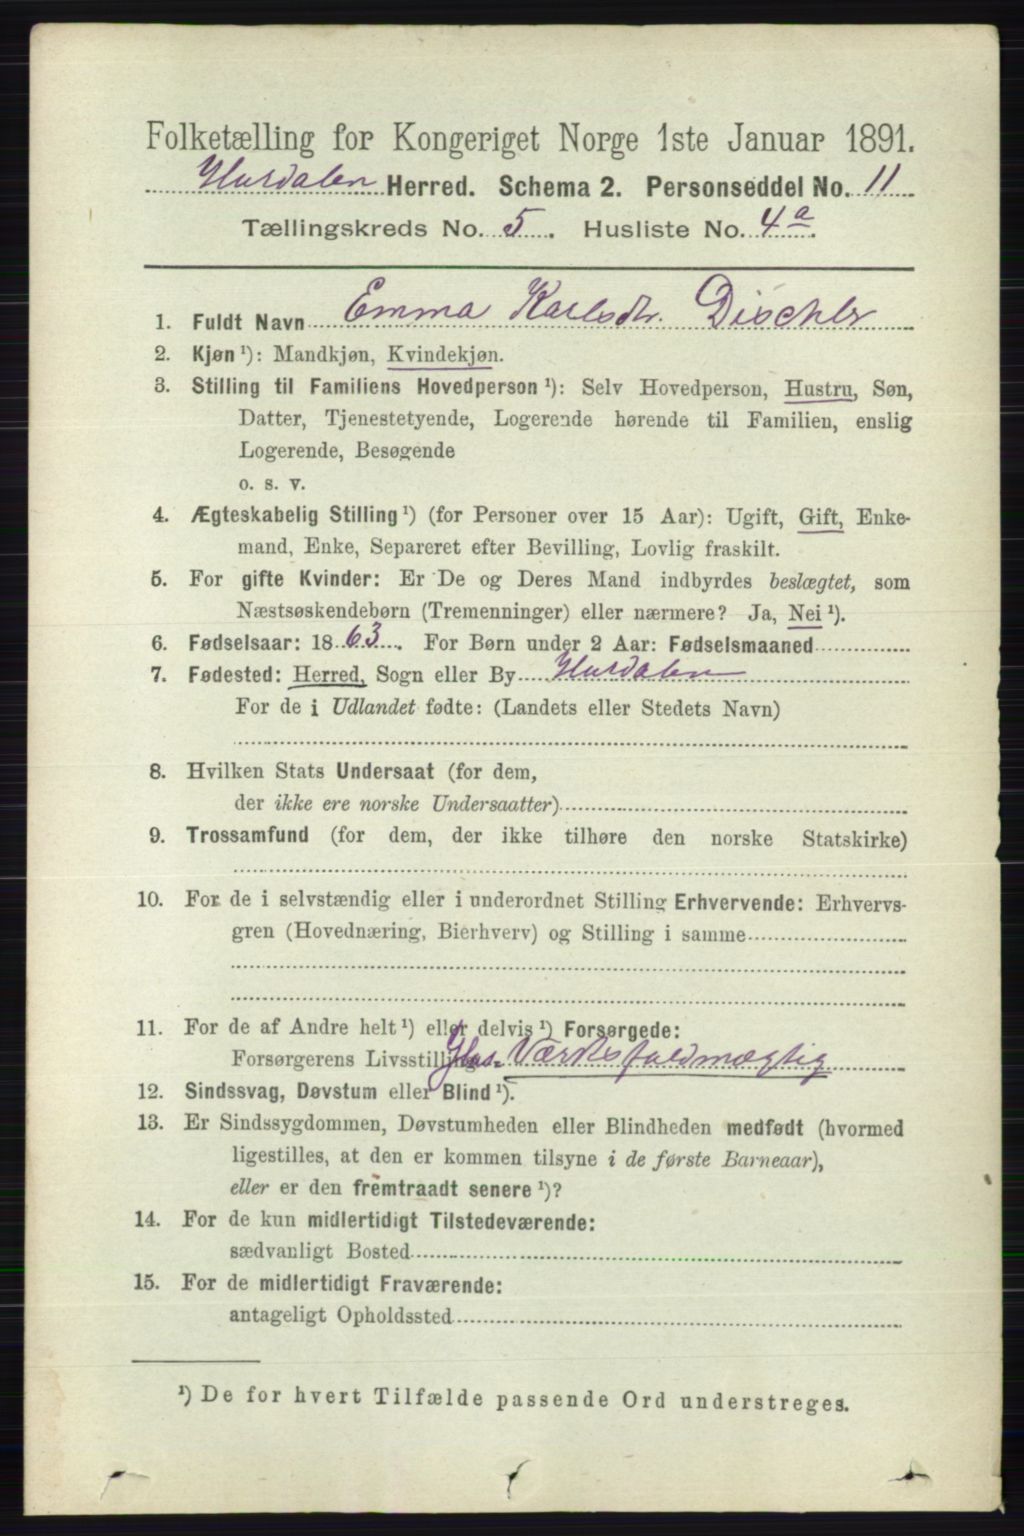 Folketælling for Kongeriget Norge 1ste Januar 1891.
Hurdalen Herred. Schema 2. Personseddel No. 11
Tællingskreds No. 5. Husliste No. 4a.
1. Fuldt Navn Emma Karlsdtr. Dischler
2. Kjøn ¹): Mandkjøn, Kvindekjøn.
3. Stilling til Familiens Hovedperson ¹): Selv Hovedperson, Hustru, Søn,
Datter, Tjenestetyende, Logerende hørende til Familien, enslig
Logerende, Besøgende
o. s. v.
4. Ægteskabelig Stilling ¹) (for Personer over 15 Aar): Ugift, Gift, Enke-
mand, Enke, Separeret efter Bevilling, Lovlig fraskilt.
5. For gifte Kvinder: Er De og Deres Mand indbyrdes beslægtet, som
Næstsøskendebørn (Tremenninger) eller nærmere? Ja, Nei ¹).
6. Fødselsaar: 1863. For Børn under 2 Aar: Fødselsmaaned
7. Fødested: Herred, Sogn eller By Hurdalen
For de i Udlandet fødte: (Landets eller Stedets Navn)
8. Hvilken Stats Undersaat (for dem,
der ikke ere norske Undersaatter)
9. Trossamfund (for dem, der ikke tilhøre den norske Statskirke)
10. For de i selvstændig eller i underordnet Stilling Erhvervende: Erhvervs-
gren (Hovednæring, Bierhverv) og Stilling i samme
11. For de af Andre helt ¹) eller delvis ¹) Forsørgede:
Forsørgerens Livsstilling Glas-Værksfuldmægtig
12. Sindssvag, Døvstum eller Blind ¹).
13. Er Sindssygdommen, Døvstumheden eller Blindheden medfødt (hvormed
ligestilles, at den er kommen tilsyne i de første Barneaar),
eller er den fremtraadt senere ¹)?
14. For de kun midlertidigt Tilstedeværende:
sædvanligt Bosted
15. For de midlertidigt Fraværende:
antageligt Opholdssted
¹) De for hvert Tilfælde passende Ord understreges.